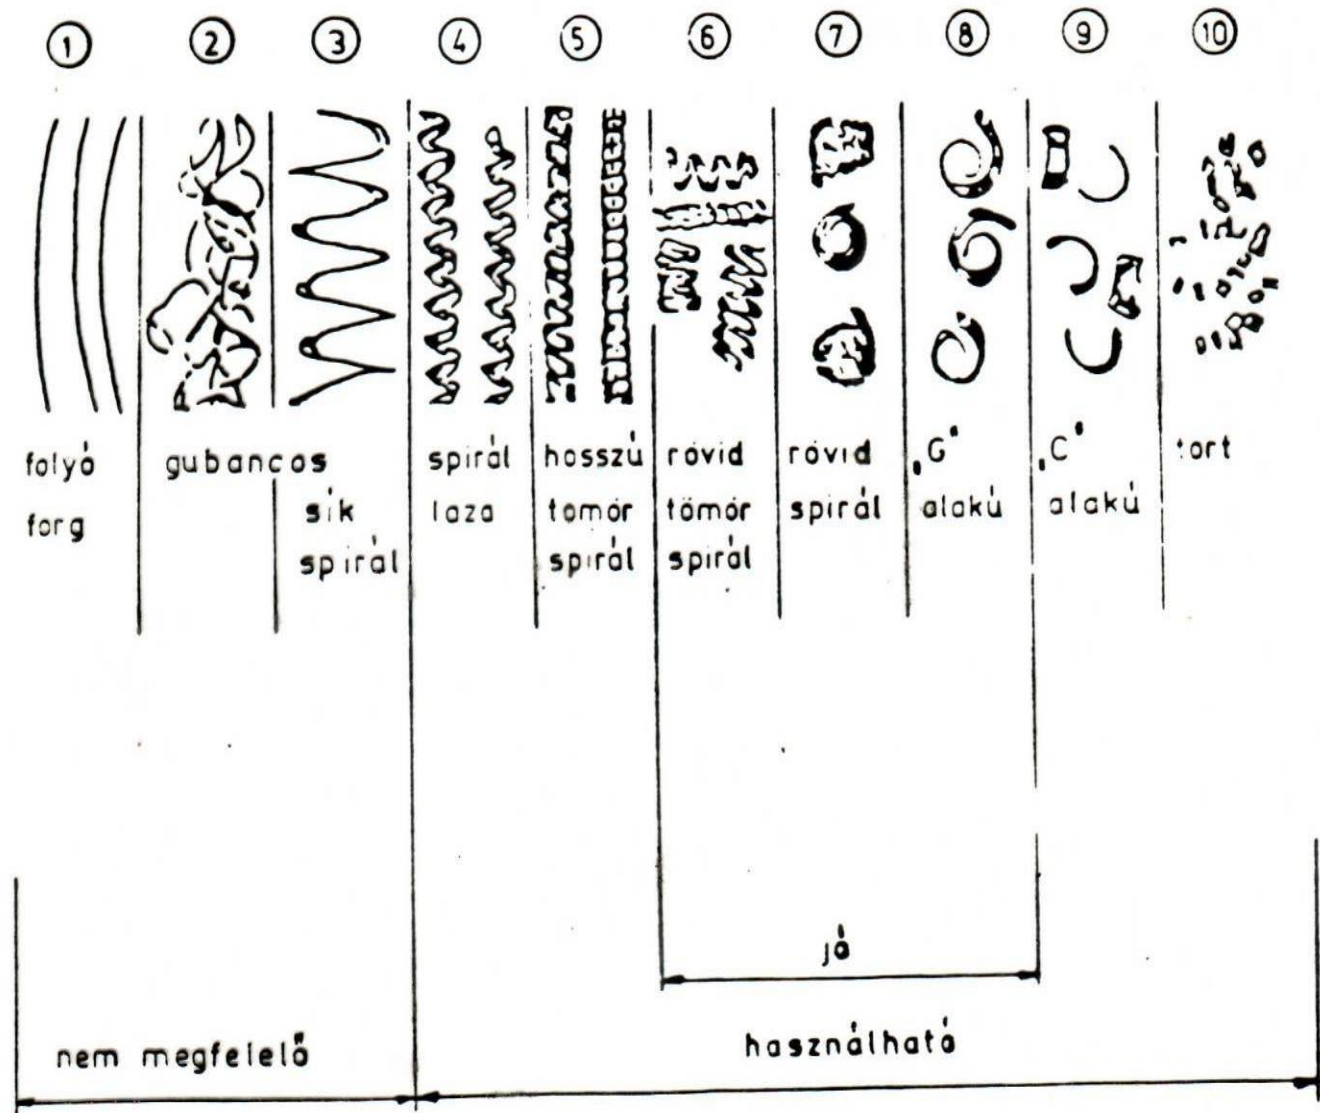 1 2 3 4 5 6 7 8 9 10
folyó
forg
gubancos
sík
spirál
spirál
laza
hosszú
tömör
spirál
rövid
tömör
spirál
rövid
spirál
„G"
alakú
„C"
alakú
tört
jó
nem megfelelő
használható